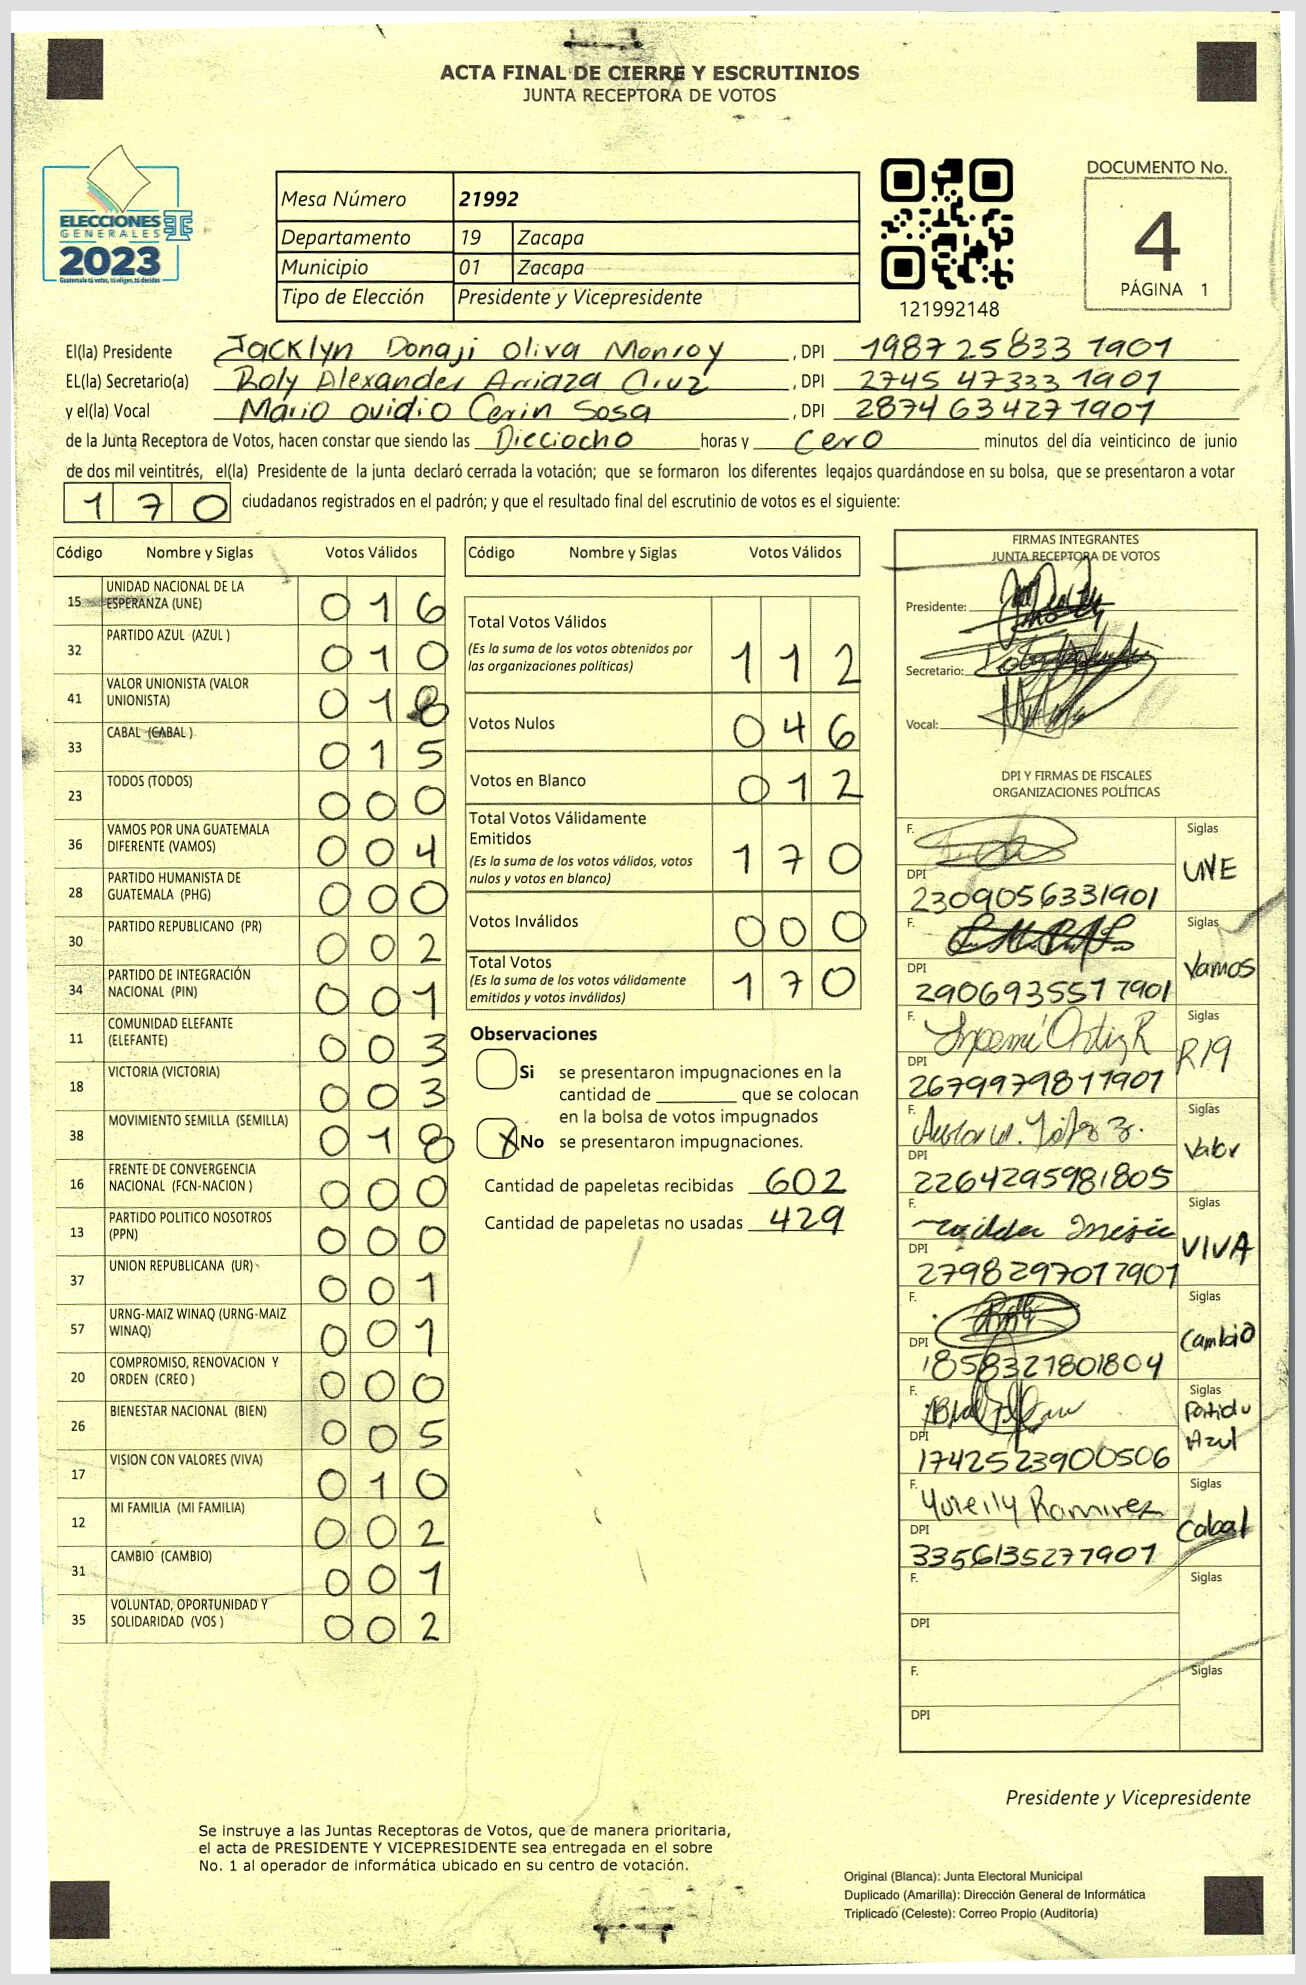 ACTA FINAL DE CIERRE Y ESCRUTINIOS
JUNTA RECEPTORA DE VOTOS
ELECCIONES
GENERALES
2023
Guatemala tú votas, tú eliges, tú decides
Mesa Número 21992
Departamento 19 Zacapa
Municipio 01 Zacapa
Tipo de Elección Presidente y Vicepresidente
121992148
DOCUMENTO No.
4
PÁGINA 1
El(la) Presidente Jacklyn Donaji Oliva Monroy, DPI 1987 25833 1901
EL(la) Secretario(a) Roly Alexander Arriaza Cruz, DPI 2745 47333 1901
y el(la) Vocal Mario Ovidio Cerin Sosa, DPI 2874 63427 1901
de la Junta Receptora de Votos, hacen constar que siendo las Dieciocho horas y Cero minutos del día veinticinco de junio
de dos mil veintitrés, el(la) Presidente de la junta declaró cerrada la votación; que se formaron los diferentes legajos quardándose en su bolsa, que se presentaron a votar
170 ciudadanos registrados en el padrón; y que el resultado final del escrutinio de votos es el siguiente:
Código Nombre y Siglas Votos Válidos
15 UNIDAD NACIONAL DE LA ESPERANZA (UNE) 016
32 PARTIDO AZUL (AZUL ) 010
41 VALOR UNIONISTA (VALOR UNIONISTA) 018
33 CABAL (CABAL ) 015
23 TODOS (TODOS) 000
36 VAMOS POR UNA GUATEMALA DIFERENTE (VAMOS) 004
28 PARTIDO HUMANISTA DE GUATEMALA (PHG) 000
30 PARTIDO REPUBLICANO (PR) 002
34 PARTIDO DE INTEGRACIÓN NACIONAL (PIN) 001
11 COMUNIDAD ELEFANTE (ELEFANTE) 003
18 VICTORIA (VICTORIA) 003
38 MOVIMIENTO SEMILLA (SEMILLA) 018
16 FRENTE DE CONVERGENCIA NACIONAL (FCN-NACION ) 000
13 PARTIDO POLITICO NOSOTROS (PPN) 000
37 UNION REPUBLICANA (UR) 001
57 URNG-MAIZ WINAQ (URNG-MAIZ WINAQ) 001
20 COMPROMISO, RENOVACION Y ORDEN (CREO ) 000
26 BIENESTAR NACIONAL (BIEN) 005
17 VISION CON VALORES (VIVA) 010
12 MI FAMILIA (MI FAMILIA) 002
31 CAMBIO (CAMBIO) 001
35 VOLUNTAD, OPORTUNIDAD Y SOLIDARIDAD (VOS ) 002
Código Nombre y Siglas Votos Válidos
Total Votos Válidos
(Es la suma de los votos obtenidos por
las organizaciones políticas) 112
Votos Nulos 046
Votos en Blanco 012
Total Votos Válidamente
Emitidos
(Es la suma de los votos válidos, votos
nulos y votos en blanco) 170
Votos Inválidos 000
Total Votos
(Es la suma de los votos válidamente
emitidos y votos inválidos) 170
Observaciones
Si se presentaron impugnaciones en la
cantidad de ________ que se colocan
en la bolsa de votos impugnados
X No se presentaron impugnaciones.
Cantidad de papeletas recibidas 602
Cantidad de papeletas no usadas 429
FIRMAS INTEGRANTES
JUNTA RECEPTORA DE VOTOS
Presidente:
Secretario:
Vocal:
DPI Y FIRMAS DE FISCALES
ORGANIZACIONES POLÍTICAS
F. Siglas
UNE
DPI
2309056331901
F. Siglas
Vamos
DPI
2906935517901
F. Noemí Ortiz R Siglas
R19
DPI
2679979811901
F. Siglas
Valor
DPI
2264295981805
F. Siglas
VIVA
DPI
2798297017901
F. Siglas
Cambio
DPI
1858321801804
F. Siglas
Partido
Azul
DPI
1742523900506
F. Yureily Ramirez Siglas
Cabal
DPI
3356135271901
F. Siglas
DPI
F. Siglas
DPI
Presidente y Vicepresidente
Se instruye a las Juntas Receptoras de Votos, que de manera prioritaria,
el acta de PRESIDENTE Y VICEPRESIDENTE sea entregada en el sobre
No. 1 al operador de informática ubicado en su centro de votación.
Original (Blanca): Junta Electoral Municipal
Duplicado (Amarilla): Dirección General de Informática
Triplicado (Celeste): Correo Propio (Auditoría)